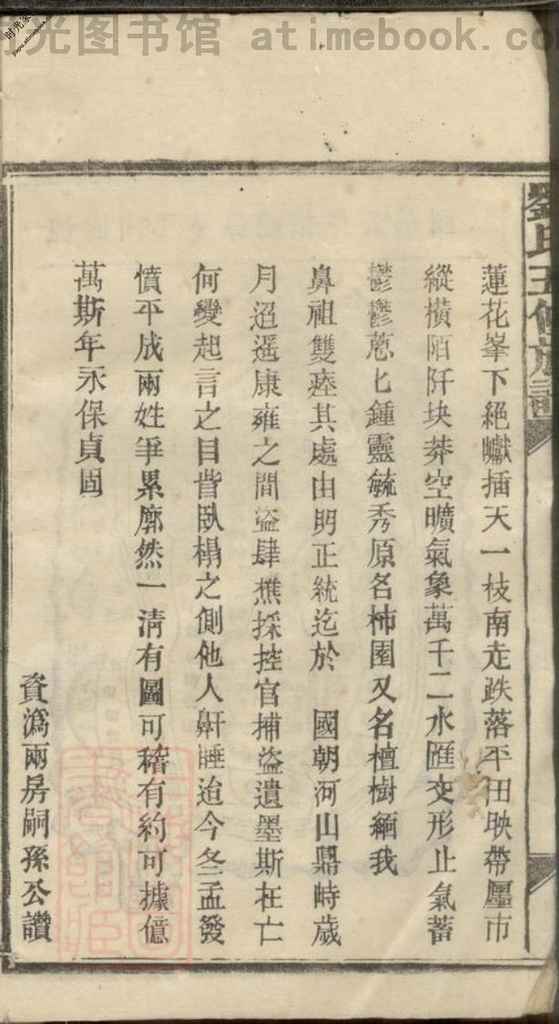 时光图书馆 atimebook.com
劉氏五修族譜
蓮花峯下絕巘插天一枝南走跌落平田映帶廛市
縱橫陌阡坱莽空曠氣象萬千二水匯交形止氣蓄
鬱鬱蔥匕鍾靈毓秀原名柿園又名檀樹緬我
鼻祖雙瘞其處由明正統迄於 國朝河山鼎峙歲
月迢遥康雍之間盜肆樵採控官捕盜遺墨斯在亡
何變起言之目眥臥榻之側他人鼾睡迨今冬孟發
憤平成兩姓爭累廓然一清有圖可稽有約可據億
萬斯年永保貞固
資溈兩房嗣孫公讚